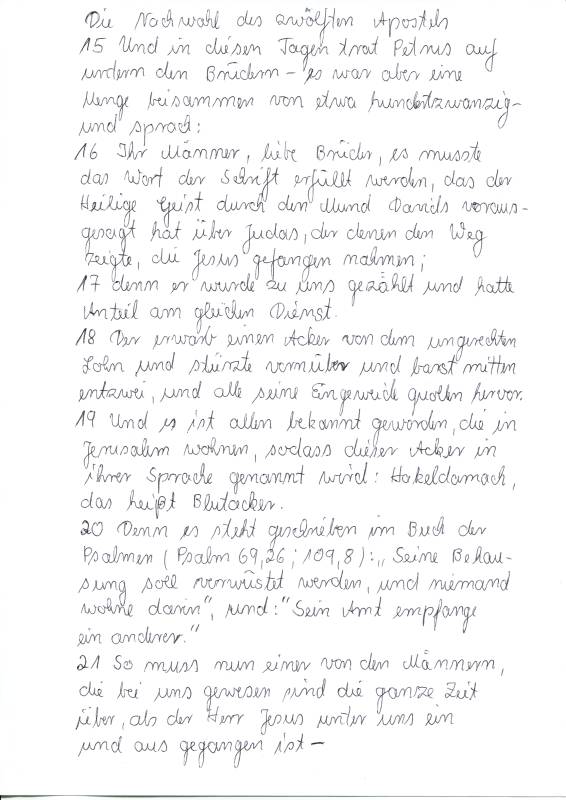 Die Nachwahl des zwölften Apostels
15 Und in diesen Tagen trat Petrus auf
unter den Brüdern – es war aber eine
Menge beisammen von etwa hundertzwanzig –
und sprach:
16 Ihr Männer, liebe Brüder, es musste
das Wort der Schrift erfüllt werden, das der
Heilige Geist durch den Mund Davids voraus-
gesagt hat über Judas, der denen den Weg
zeigte, die Jesus gefangen nahmen;
17 denn er wurde zu uns gezählt und hatte
Anteil am gleichen Dienst.
18 Der erwarb einen Acker von dem ungerechten
Lohn und stürzte vornüber und barst mitten
entzwei, und alle seine Eingeweide quollen hervor.
19 Und es ist allen bekannt geworden, die in
Jerusalem wohnen, sodass dieser Acker in
ihrer Sprache genannt wird: Hakeldamach,
das heißt Blutacker.
20 Denn es steht geschrieben im Buch der
Psalmen (Psalm 69,26; 109,8): „Seine Behau-
sung soll verwüstet werden, und niemand
wohne darin", und: "Sein Amt empfange
ein anderer."
21 So muss nun einer von den Männern,
die bei uns gewesen sind die ganze Zeit
über, als der Herr Jesus unter uns ein
und aus gegangen ist –